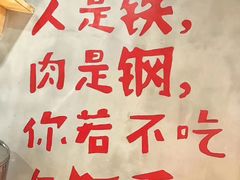 人是铁，
肉是钢，
你若不吃